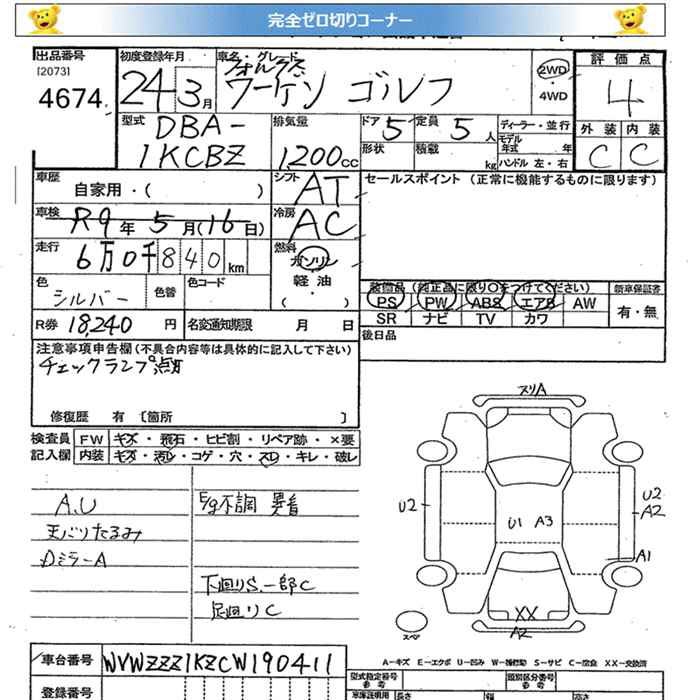 完全ゼロ切りコーナー
出品番号
[2073]
4674
初度登録年月
24 3月
車名・グレード
フォルクス
ワーゲン ゴルフ
2WD
・
4WD
評価点
4
外装 内装
C C
型式
DBA-
1KCBZ
排気量
1,200cc
ドア 5
定員 5人
形状
積載 kg
ディーラー・並行
モデル年式 年
ハンドル 左・右
車歴 自家用・( )
シフト AT
セールスポイント (正常に機能するものに限ります)
車検 R9年 5月(16日)
冷房 AC
走行 6万0千840km
燃料
ガソリン
軽油
・( )
色 シルバー
色替
色コード
装備品(純正品に限り○をつけてください)
PS PW ABS エアB AW
SR ナビ TV カワ
新車保証書
有・無
R券 18,240 円
名変通知期限 月 日
後日品
注意事項申告欄(不具合内容等は具体的に記入して下さい)
チェックランプ点灯
修復歴 有 〔箇所 〕
検査員 FW キズ・飛石・ヒビ割・リペア跡・×要
記入欄 内装 キズ・汚レ・コゲ・穴・スレ・キレ・破レ
A.U
天バリたるみ
Dミラー A
E/g不調 異音
下廻りS.一部C
足廻りC
スリA
U2
U1 A3
U2
A2
A1
XX
A2
スペア
A-キズ E-エクボ U-凹み W-補修跡 S-サビ C-腐食 X X-交換済
車台番号 WVWZZZ1KZCW190411
登録番号
型式指定番号
参考
類別区分番号
参考
車庫証明用 長さ 幅 高さ